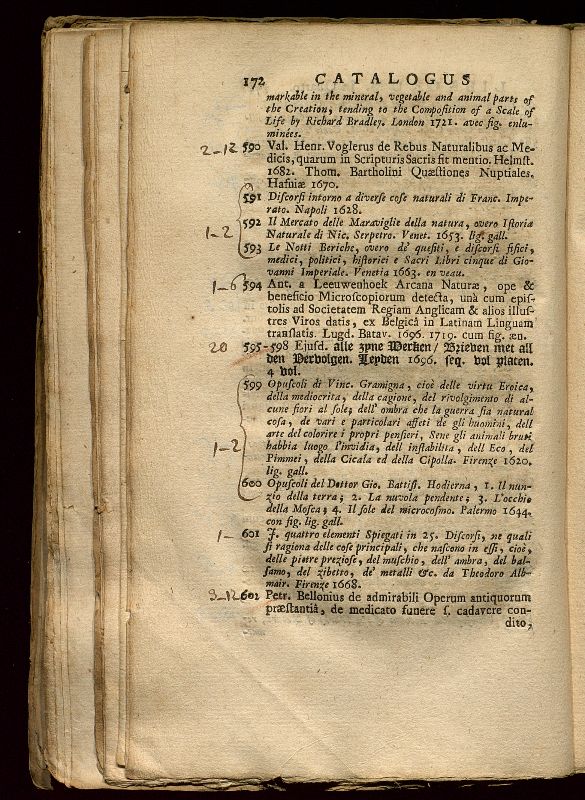 172 CATALOGUS
markable in the mineral, vegetable and animal parts of
the Creation, tending to the Composition of a Scale of
Life by Richard Bradley. London 1721. avec fig. enlu-
minées.
2-12 590 Val. Henr. Voglerus de Rebus Naturalibus ac Me-
dicis, quarum in Scripturis Sacris fit mentio. Helmst.
1682. Thom. Bartholini Quæstiones Nuptiales.
Hafniæ 1670.
591 Discorsi intorno a diverse cose naturali di Franc. Impe-
rato. Napoli 1628.
1-2 592 Il Mercato delle Maraviglie della natura, overo Istoria
Naturale di Nic. Serpetro. Venet. 1653. lig. gall.
593 Le Notti Beriche, overo de' quesiti, e discorsi fisici,
medici, politici, historici e Sacri Libri cinque di Gio-
vanni Imperiale. Venetia 1663. en veau.
1-6 594 Ant. a Leeuwenhoek Arcana Naturæ, ope &
beneficio Microscopiorum detecta, unà cum epis-
tolis ad Societatem Regiam Anglicam & alios illus-
tres Viros datis, ex Belgicâ in Latinam Linguam
translatis. Lugd. Batav. 1696. 1719. cum fig. æn.
20 595-598 Ejusd. alle zyne Werken/ Brieven met all
den Vervolgen. Leyden 1696. seq. vol platen.
4 vol.
599 Opuscoli di Vinc. Gramigna, cioé delle virtu Eroica,
della mediocrita, della cagione, del rivolgimento di al-
cune fiori al sole, dell' ombra che la guerra sia natural
cosa, de vari e particolari affeti de gli huomini, dell
arte del colorire i propri pensieri, Sene gli animali bruti
1-2 habbia luogo l'invidia, dell instabilita, dell Eco, del
Pimmei, della Cicala ed della Cipolla. Firenze 1620.
lig. gall.
600 Opuscoli del Dottor Gio. Battist. Hodierna, 1. Il nun-
zio della terra; 2. La nuvola pendente; 3. L'occhio
della Mosca; 4. Il sole del microcosmo. Palermo 1644.
con fig. lig. gall.
1- 601 J. quattro elementi Spiegati in 25. Discorsi, ne quali
si ragiona delle cose principali, che nascono in essi, cioè,
delle pietre preziose, del muschio, dell' ambra, del bal-
samo, del zibetto, de' metalli &c. da Theodoro Alb-
mair. Firenze 1668.
3-12 602 Petr. Bellonius de admirabili Operum antiquorum
præstantiâ, de medicato funere s. cadavere con-
dito,